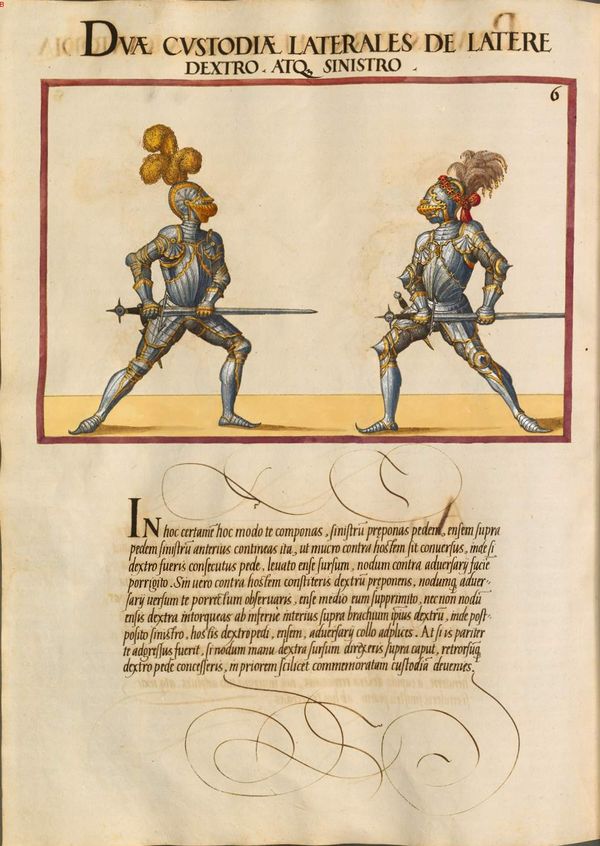 B
DVÆ CVSTODIÆ LATERALES DE LATERE
DEXTRO. ATQ, SINISTRO.
6
IN hoc certamē hoc modo te componas, sinistrū preponas pedem, ensem supra
pedem sinistrū anterius contineas ita, ut mucro contra hostem sit conuersus, inde si
dextro fueris consecutus pede, leuato ense sursum, nodum contra aduersarij facie
porrigito. Sin uero contra hostem constiteris dextrū preponens, nodumq, aduer-
sarij uersum te porrectum obseruaris, ense medio eum supprimito, nec non nodū
ensis dextra intorqueas ab inferne interius supra brachium ipsius dextrū, inde post-
posito sinistro, hostis dextro pedi, ensem, aduersarij collo adplices. At si is pariter
te adgressus fuerit, si nodum manu dextra sursum direxeris supra caput, retrorsūq,
dextro pede concesseris, in priorem scilicet commemoratam custodiā deuenies.